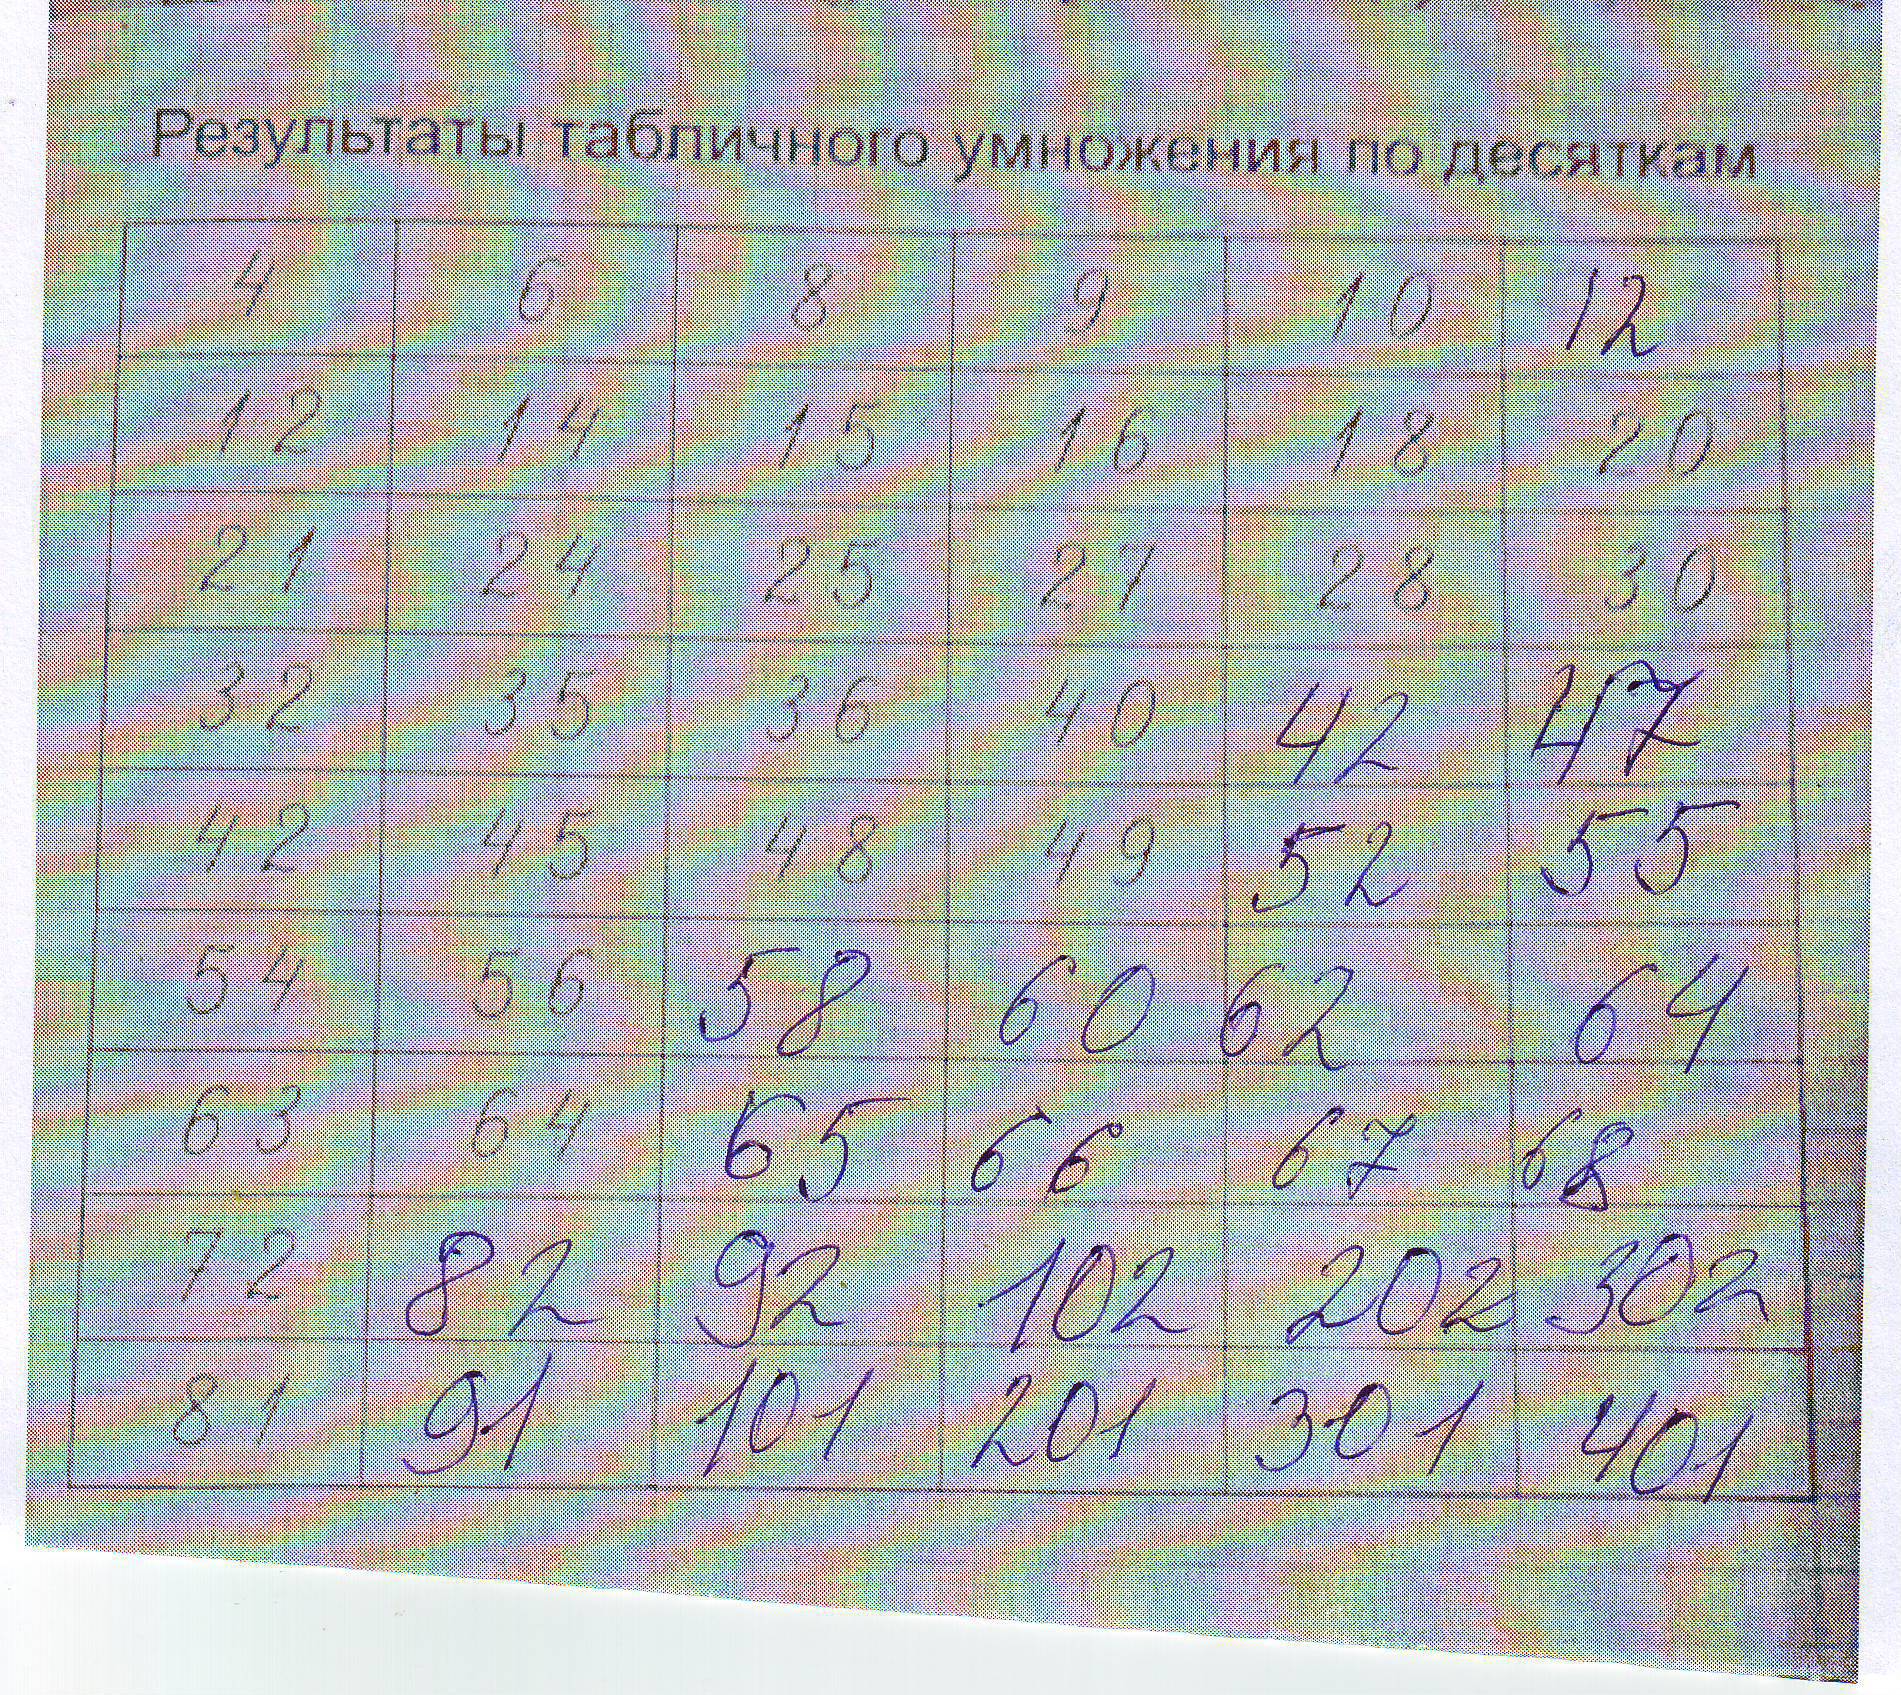 Результаты табличного умножения по десяткам
4 6 8 9 10 12
12 14 15 16 18 20
21 24 25 27 28 30
32 35 36 40 42 47
42 45 48 49 52 55
54 56 58 60 62 64
63 64 65 66 67 68
72 82 92 102 202 302
81 91 101 201 301 401